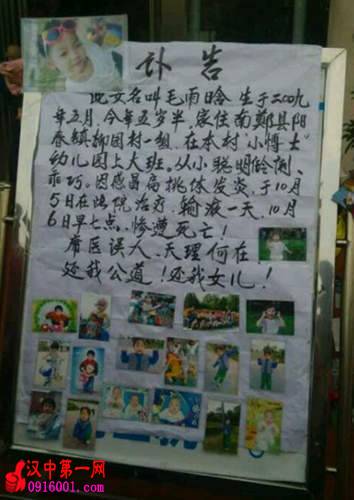 讣告
此女名叫毛雨晗 生于二00九
年五月,今年五岁半,家住南郑县阳
春镇柳园村一组,在本村“小博士”
幼儿园上大班。从小聪明伶俐、
乖巧。因感冒扁挑体发炎,于10月
5日在 院治疗,输液一天,10月
6日早七点,惨遭死亡!
庸医误人,天理何在,
还我公道!还我女儿!
汉中第一网
0916001.com